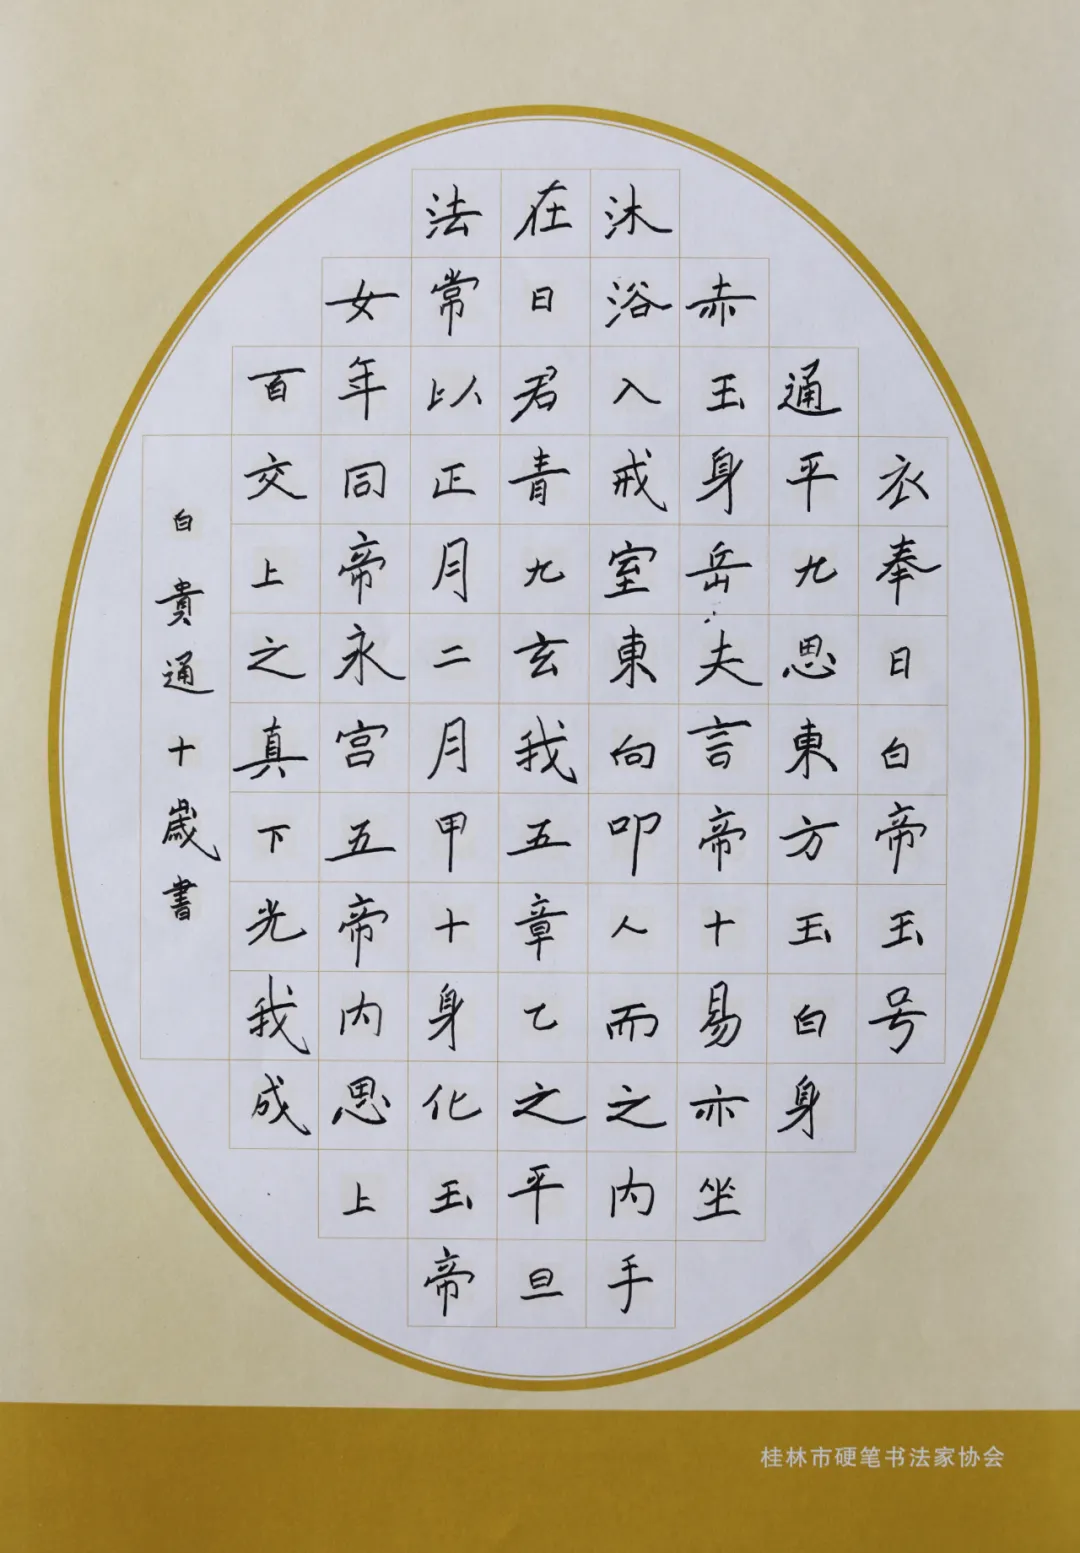 衣奉日白帝玉号
通平九思東方玉白身
赤玉身岳夫言帝十易亦坐
沐浴入戒室東向叩人而之内手
在日君青九玄我五章乙之平旦
法常以正月二月甲十身化玉帝
女年同帝永宫五帝内思上
百交上之真下光我成
白貴通十歲書
桂林市硬笔书法家协会